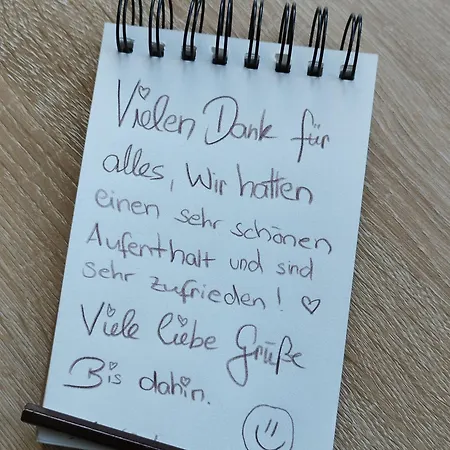 Vielen Dank für
alles, Wir hatten
einen sehr schönen
Aufenthalt und sind
sehr zufrieden! ♡
Viele liebe Grüße
Bis dahin.